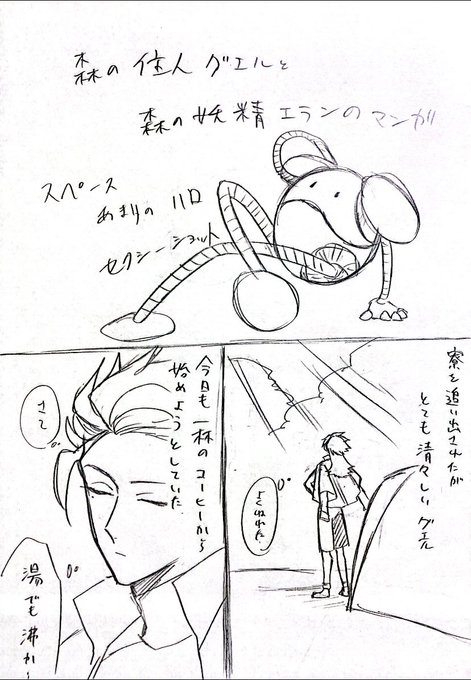 森の住人グエルと
森の妖精エランのマンガ
スペース
あまりのハロ
セクシーショット
寮を追い出されたが
とても清々しいグエル
よくねれた
今日も一杯のコーヒーから
始めようとしていた
さて
湯でも沸か〜